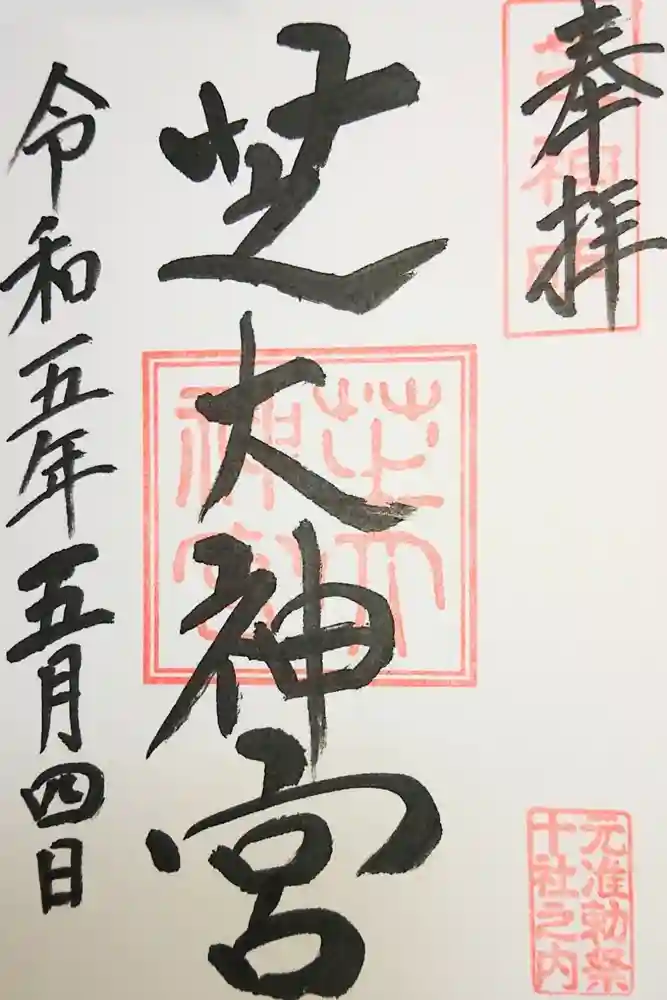 奉拝
芝神明
元准勅祭
十社之内
芝大神宮
芝大
神宮
令和五年五月四日